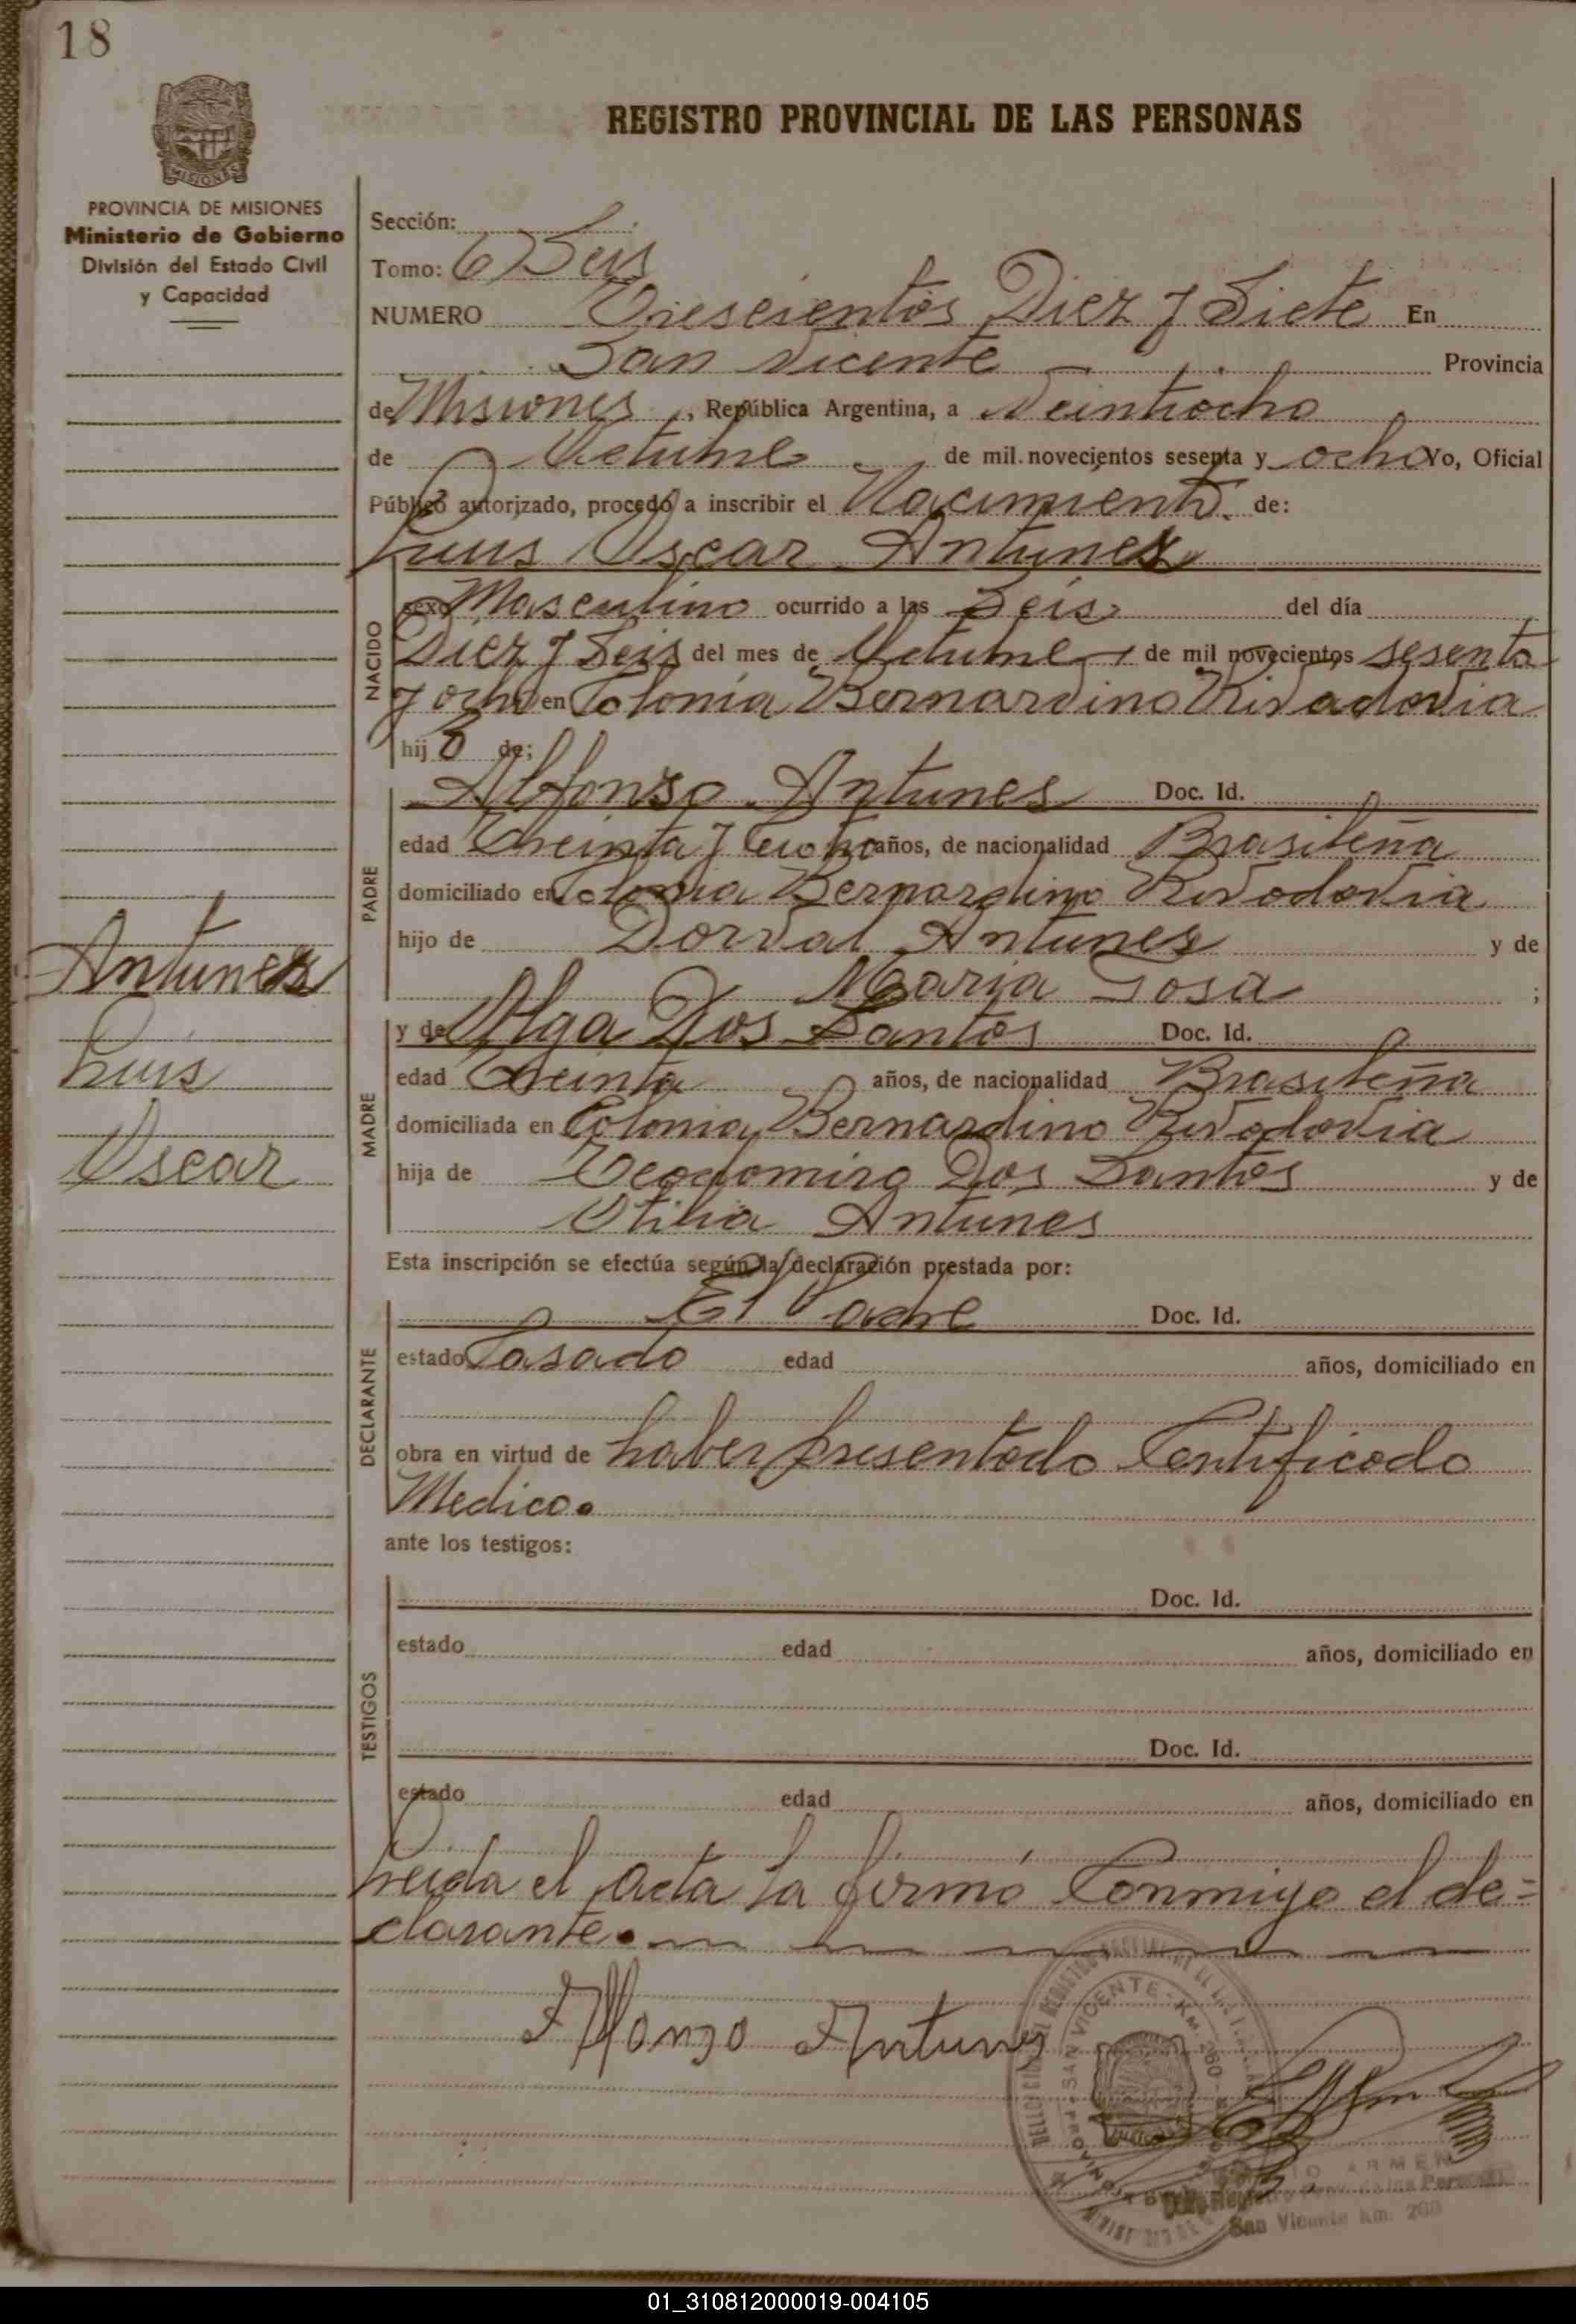 18
REGISTRO PROVINCIAL DE LAS PERSONAS
MISIONES
PROVINCIA DE MISIONES
Ministerio de Gobierno
División del Estado Civil
y Capacidad
Sección:
Tomo: 6) Seis
NUMERO Trescientos Diez y Siete En
San Vicente Provincia
de Misiones, República Argentina, a Veintiocho
de Octubre de mil novecientos sesenta y ocho Yo, Oficial
Público autorizado, procedo a inscribir el Nacimiento de:
Luis Oscar Antunes
NACIDO
sexo Masculino ocurrido a las Seis del día
Diez y Seis del mes de Octubre de mil novecientos sesenta
y ocho en Colonia Bernardino Rivadavia
hijo de:
PADRE
Alfonso Antunes Doc. Id.
edad Treinta y años, de nacionalidad Brasileña
domiciliado en Colonia Bernardino Rivadavia
hijo de Dorval Antunes y de
Maria Rosa ;
MADRE
y de Olga Dos Santos Doc. Id.
edad Treinta años, de nacionalidad Brasileña
domiciliada en Colonia Bernardino Rivadavia
hija de Teodomiro Dos Santos y de
Otilia Antunes
Antunes
Luis
Oscar
Esta inscripción se efectúa según la declaración prestada por:
DECLARANTE
El Padre Doc. Id.
estado Casado edad años, domiciliado en
obra en virtud de haber presentado Certificado
Medico.
ante los testigos:
TESTIGOS
Doc. Id.
estado edad años, domiciliado en
Doc. Id.
estado edad años, domiciliado en
Leida el acta la firmó Conmigo el de=
clarante.
Alfonzo Antunes
SAN VICENTE - KM. 260
ARMEN
San Vicente km. 260
01_310812000019-004105